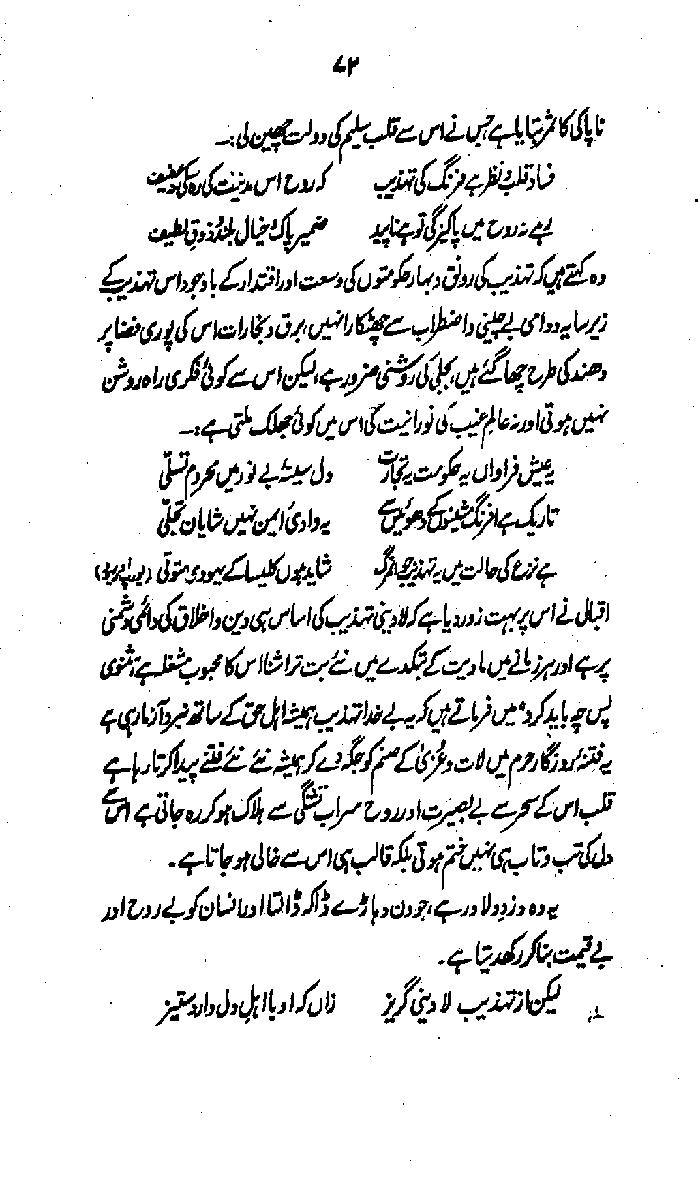 ۷۲
ناپاکی کا ثمر بتایا ہے جس نے اس سے قلب سلیم کی دولت چھین لی:۔
فساد قلب و نظر ہے فرنگ کی تہذیب کہ روح اس مدنیت کی رہ سکی نہ عفیف
رہے نہ روح میں پاکیزگی تو ہے ناپید ضمیر پاک و خیال بلند و ذوق لطیف
وہ کہتے ہیں کہ تہذیب کی رونق و بہار حکومتوں کی وسعت اور اقتدار کے باوجود اس تہذیب کے
زیر سایہ دوامی بے چینی و اضطراب سے چھٹکارا نہیں، برق و بخارات اس کی پوری فضا پر
دھند کی طرح چھا گئے ہیں، بجلی کی روشنی ضرور ہے، لیکن اس سے کوئی فکری راہ روشن
نہیں ہوتی اور نہ عالم غیب کی نورانیت کی اس میں کوئی جھلک ملتی ہے:۔
یہ عیش فراواں یہ حکومت یہ تجارت دل سینہء بے نور میں محروم تسلی
تاریک ہے افرنگ مشینوں کے دھوئیں سے یہ وادیٔ ایمن نہیں شایان تجلی
ہے نزع کی حالت میں یہ تہذیب جواں مرگ شاید ہوں کلیسا کے یہودی متولی (یورپ اور یہود)
اقبال نے اس پر بہت زور دیا ہے کہ لادینی تہذیب کی اساس ہی دین و اخلاق کی دائمی دشمنی
پر ہے اور ہر زمانے میں مادیت کے بتکدے میں نئے بت تراشنا اس کا محبوب مشغلہ ہے، مثنوی
پس چہ باید کرد" میں فرماتے ہیں کہ یہ بے خدا تہذیب ہمیشہ اہل حق کے ساتھ نبرد آزما رہی ہے
یہ فتنۂ روزگار حرم میں لات و عزیٰ کے صنم کو جگہ دے کر ہمیشہ نئے نئے فتنے پیدا کرتا رہا ہے
قلب اس کے سحر سے بے بصیرت اور روح سراب تشنگی سے ہلاک ہو کر رہ جاتی ہے اس سے
دل کی تب و تاب ہی نہیں ختم ہوتی بلکہ قالب ہی اس سے خالی ہو جاتا ہے۔
یہ وہ دزد دلاور ہے، جو دن دہاڑے ڈاکہ ڈالتا اور انسان کو بے روح اور
بے قیمت بنا کر رکھ دیتا ہے۔
لیکن از تہذیب لا دینی گریز زاں کہ او با اہل دل دارد ستیز